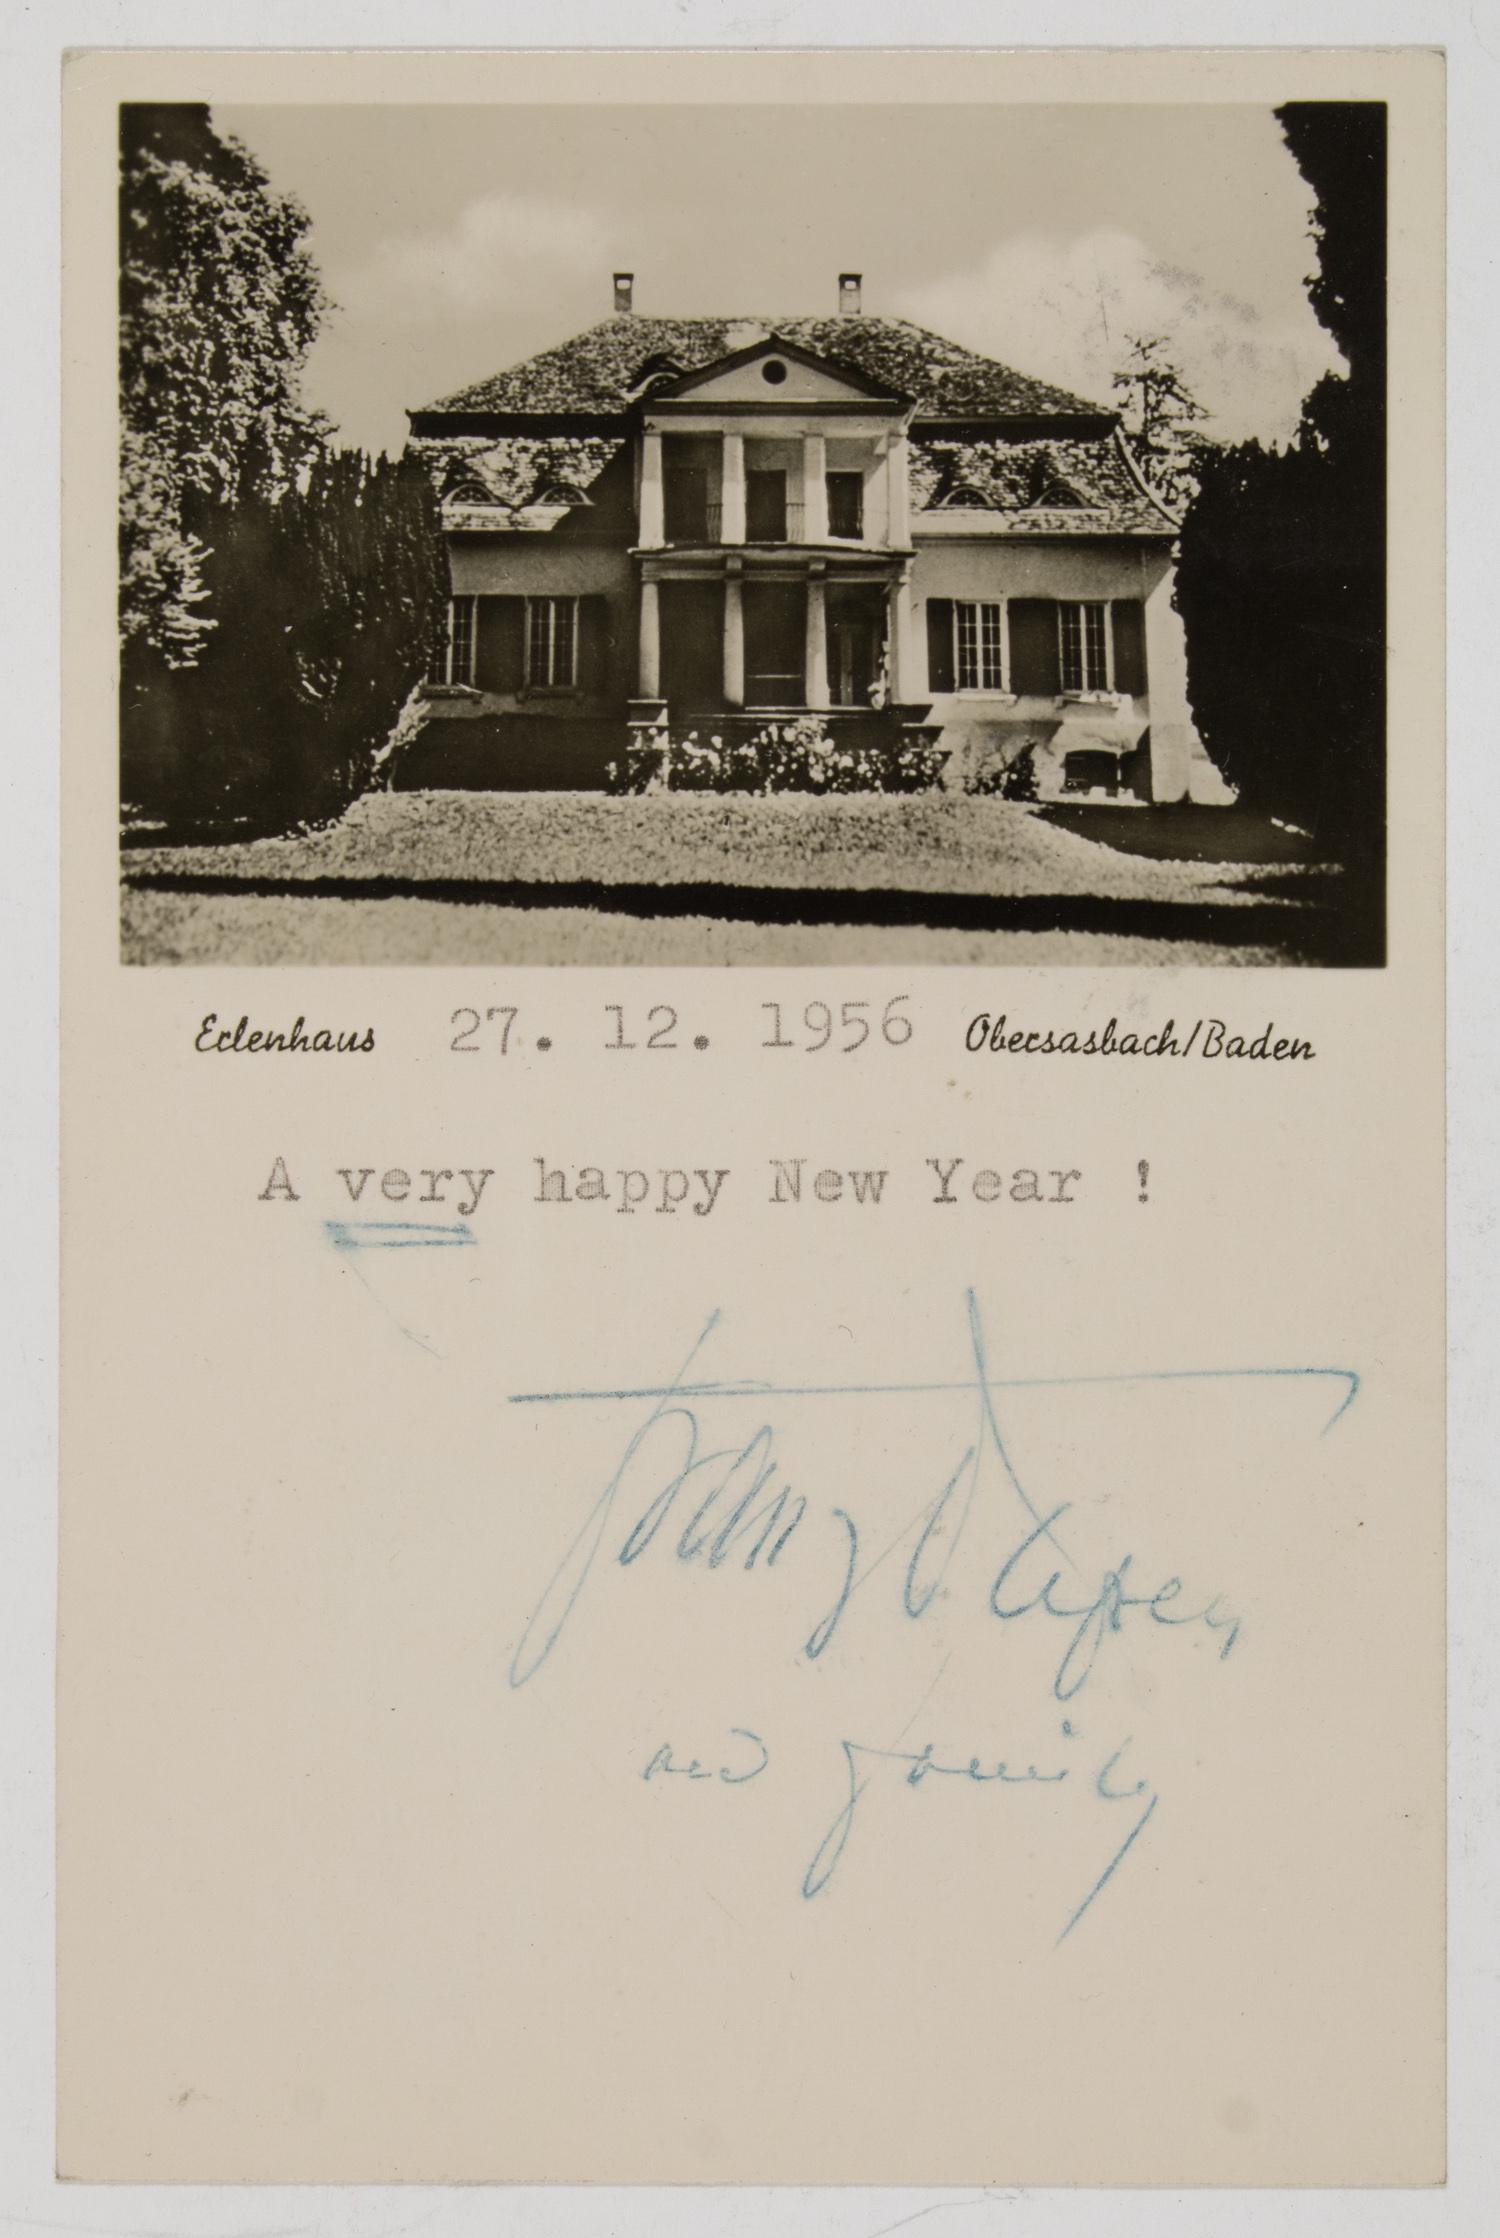 Erlenhaus 27. 12. 1956 Obersasbach/Baden
A very happy New Year !
Franz v Papen
and family